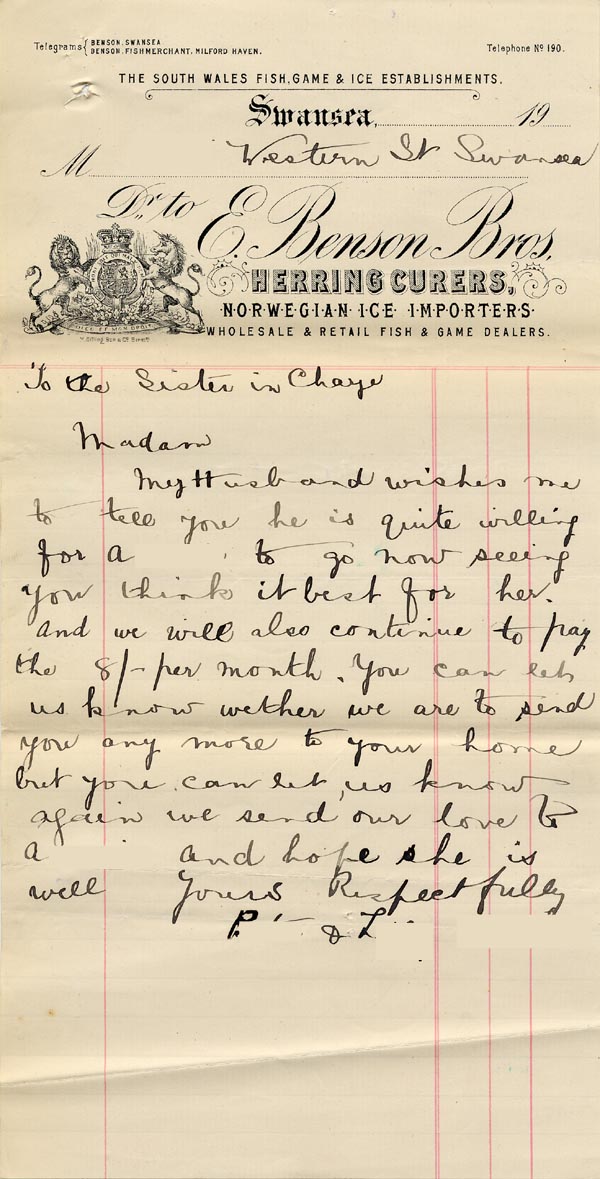 Telegrams { BENSON, SWANSEA
BENSON, FISHMERCHANT, MILFORD HAVEN.
Telephone No 190.
THE SOUTH WALES FISH, GAME & ICE ESTABLISHMENTS.
Swansea, 19
Western St Swansea
M
Dr. to E. Benson Bros.
HERRING CURERS,
NORWEGIAN ICE IMPORTERS
WHOLESALE & RETAIL FISH & GAME DEALERS.
To the Sister in Charge
Madam
My Husband wishes me
to tell you he is quite willing
for A to go now seeing
you think it best for her.
and we will also continue to pay
the 8/- per month. You can let
us know wether we are to send
you any more to your home
but you can let us know
again we send our love to
A and hope she is
well Yours Respectfully
P & L